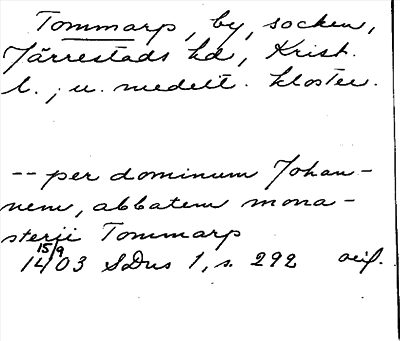 Tommarp, by, socken,
Järrestads hd, Krist.
l.; u. medelt. kloster.
-- per dominum Johan-
nem, abbatem mona-
sterji Tommarp
15/9
1403 SDns 1, s. 292 avif.